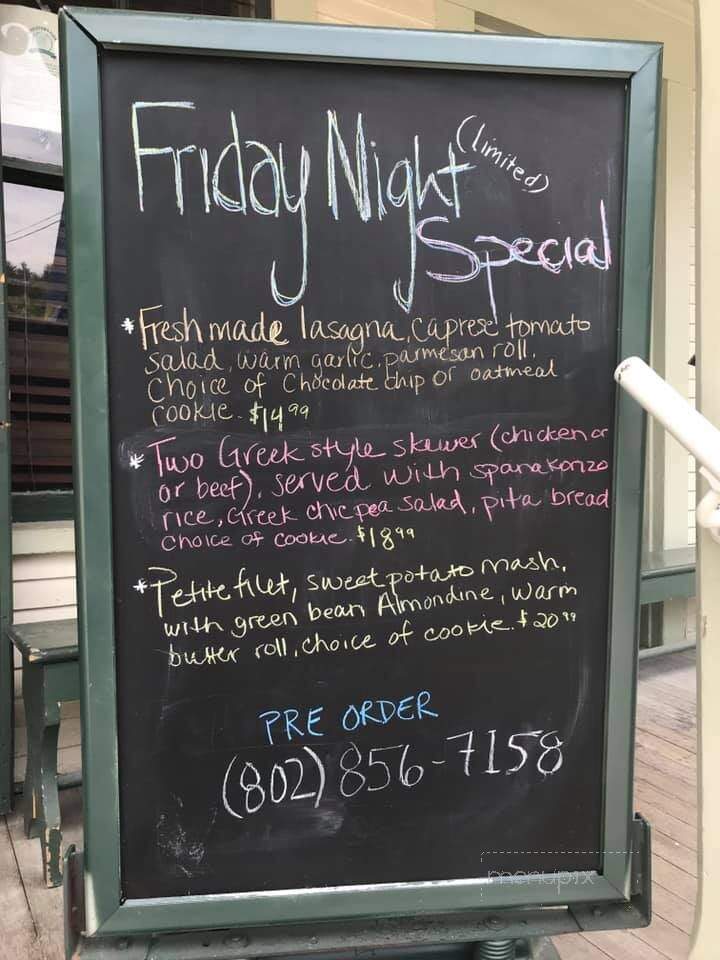 Friday Night
(limited)
Special
* Fresh made lasagna, caprese tomato
salad, warm garlic, parmesan roll,
Choice of Chocolate chip or oatmeal
cookie. $14.99
* Two Greek style skewer (chicken or
or beef), served with spanakonzo
rice, Greek chic pea salad, pita bread
choice of cookie. $18.99
* Petite filet, sweet potato mash,
with green bean Almondine, warm
butter roll, choice of cookie. $20.99
PRE ORDER
(802) 856-7158
menupix